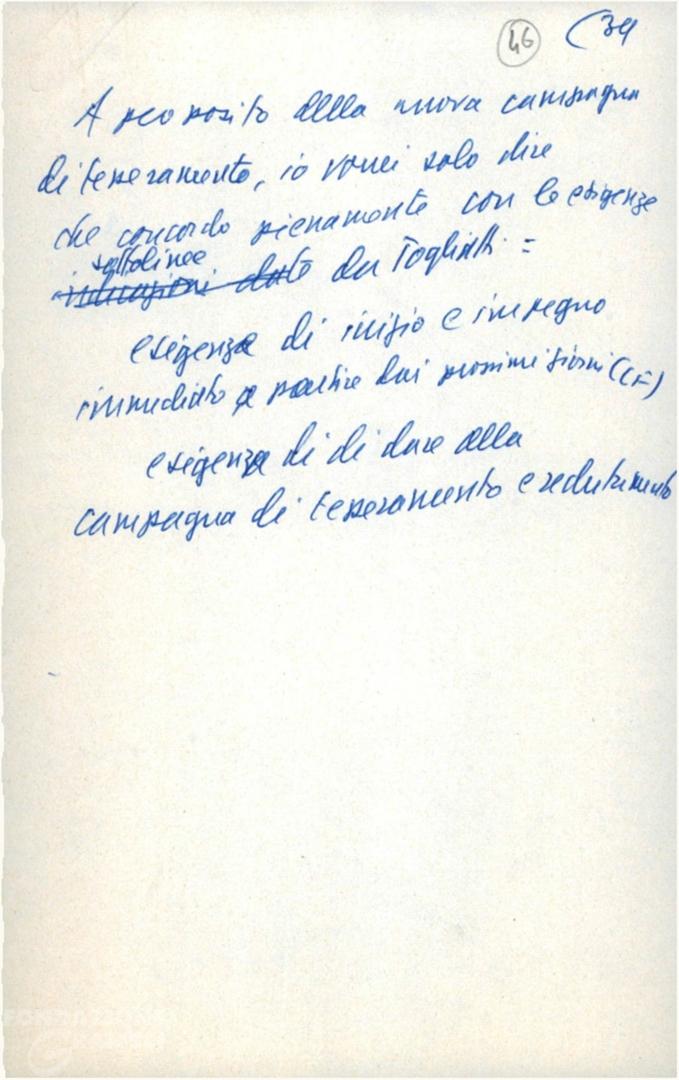 46 (34
A proposito della nuova campagna
di tesseramento, io vorrei solo dire
che concordo pienamente con le esigenze
sottolinee
indicazioni date da Togliatti =
esigenze di inizio e impegno
immediato a partire dai prossimi giorni (CF)
esigenze di di dare alla
campagna di tesseramento e reclutamento
FONDAZIONE